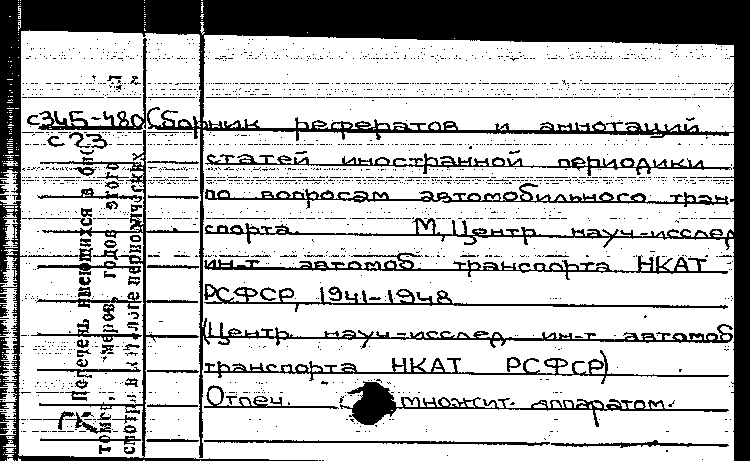 с34Б-480 Сборник рефератов и аннотаций
с23
статей иностранной периодики
по вопросам автомобильного тран-
спорта. М, Центр науч-исслед
ин-т автомоб транспорта НКАТ
РСФСР, 1941-1948
(Центр. науч-исслед. ин-т автомоб
транспорта НКАТ РСФСР)
Отпеч. множит. аппаратом.
Перечень имеющихся в
томов, годов этого
смотри в периодических
ГК